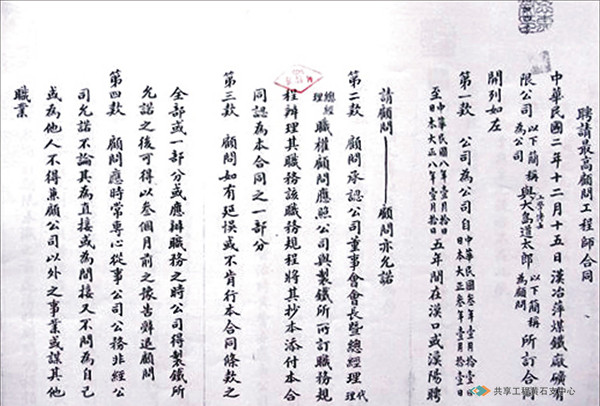 聘請最高顧問工程師合同
中華民國二年十二月十五日漢冶萍煤鐵廠礦有
限公司以下簡稱為公司與工學博士大島道太郎以下簡稱為顧問所訂合同
開列如左
第一款 公司為公司自中華民國叁年壹月拾壹日日本大正叁年壹月拾壹日
至中華民國八年壹月拾日日本大正八年壹月拾日五年間在漢口或漢陽聘
請顧問——顧問亦允諾
第二款 顧問承認公司董事會會長暨總經理代理
總經理職權顧問應照公司與製鐵所所訂職務規
程辦理其職務該職務規程將其抄本添付本合
同認為本合同之一部分
第三款 顧問如有延悞或不肯行本合同條款之
全部或一部分或應辦職務之時公司得製鐵所
允諾之後可得以叁個月前之豫告辭退顧問
第四款 顧問應時常專心從事公司公務非經公
司允諾不論其為直接或為間接又不問為自己
或為他人不得兼顧公司以外之事業或謀其他
職業
共享工程黃石文中心